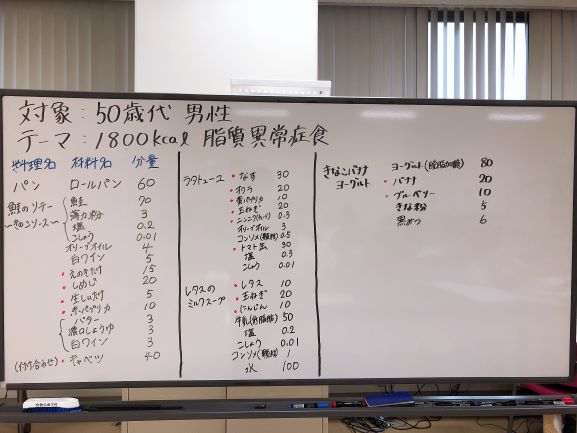 対象：50歳代 男性
テーマ：1800kcal 脂質異常症食
料理名 材料名 分量
パン ロールパン 60
鮭のソテー 鮭 70
〜きのこソース〜 薄力粉 3
塩 0.2
こしょう 0.01
オリーブオイル 4
白ワイン 5
えのきだけ 15
しめじ 20
生しいたけ 5
赤パプリカ 10
バター 3
濃口しょうゆ 3
白ワイン 3
(付け合わせ) キャベツ 40
ラタトゥーユ なす 30
オクラ 20
黄パプリカ 10
玉ねぎ 20
ニンニク 0.3
オリーブオイル 3
コンソメ(顆粒) 0.5
トマト缶 30
塩 0.3
こしょう 0.01
レタスの レタス 10
ミルクスープ 玉ねぎ 20
にんじん 10
牛乳(低脂肪) 50
塩 0.2
こしょう 0.01
コンソメ(顆粒) 1
水 100
きなこバナナ ヨーグルト 80
ヨーグルト バナナ 20
ブルーベリー 10
きな粉 5
黒みつ 6